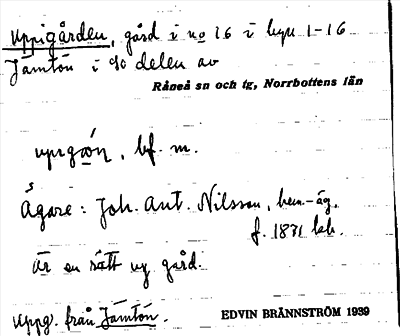 Uppigården, gård i no 16 i byn 1-16
Jämtön i sö delen av
Råneå sn och tg, Norrbottens län
bf. m.
Ägare: Joh. Ant. Nilsson, hem.-äg.
f. 1871
är en rätt ny gård.
Uppg. från Jämtön.
EDVIN BRÄNNSTRÖM 1939